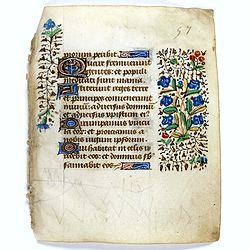 57
morum peribit.
Quare fremuerunt
gentes: et populi
meditati sunt inania.
Astiterunt reges terre
et principes convenerunt
in unum: adversus dominum
et adversus christum eius.
Dirumpamus vincla
eorum: et proiciamus a
nobis iugum ipsorum.
Qui habitat in celis ir
ridebit eos: et dominus sub
sannabit eos.